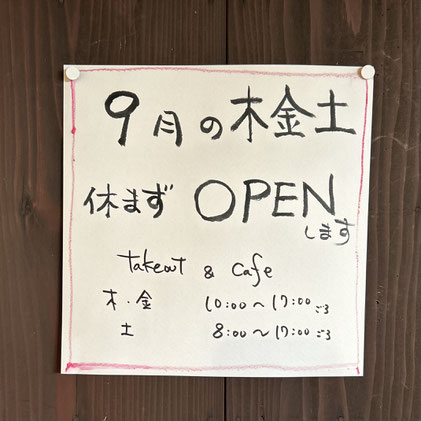 9月の木金土
休まず OPEN
します
takeout & cafe
木・金 10:00～17:00ごろ
土 8:00～17:00ごろ